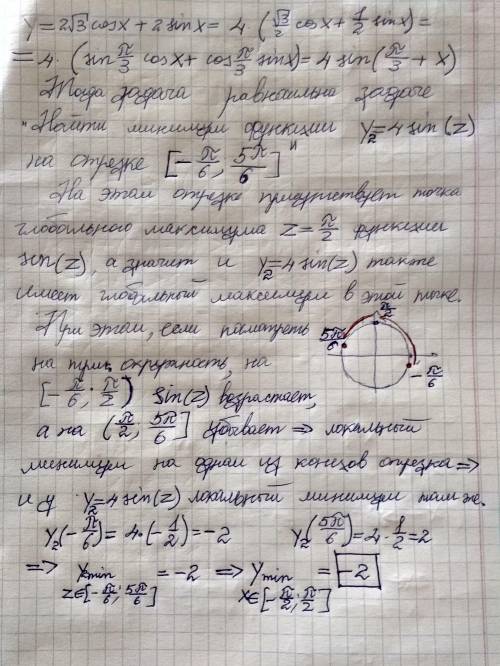 y=2√3 cosx + 2 sinx = 4 (√3/2 cosx + 1/2 sinx) =
= 4 · (sin π/3 cosx + cos π/3 sinx) = 4 sin(π/3 + x)
Тогда задача равносильна задаче
"Найти минимум функции y₂=4 sin(z)
на отрезке [-π/6; 5π/6]"
На этом отрезке присутствует точка
глобального максимума z=π/2 функции
sin(z), а значит и y₂=4 sin(z) также
имеет глобальный максимум в этой точке.
При этом, если посмотреть
на триг. окружность, на
[-π/6; π/2) sin(z) возрастает,
а на (π/2; 5π/6] убывает ⇒ локальный
минимум на одном из концов отрезка ⇒
и у y₂=4 sin(z) локальный минимум там же.
π/2
5π/6
-π/6
y₂(-π/6) = 4·(-1/2) = -2 y₂(5π/6) = 4·1/2 = 2
⇒ y₂min = -2 ⇒ ymin = -2
z∈[-π/6; 5π/6] x∈[-π/2; π/2]